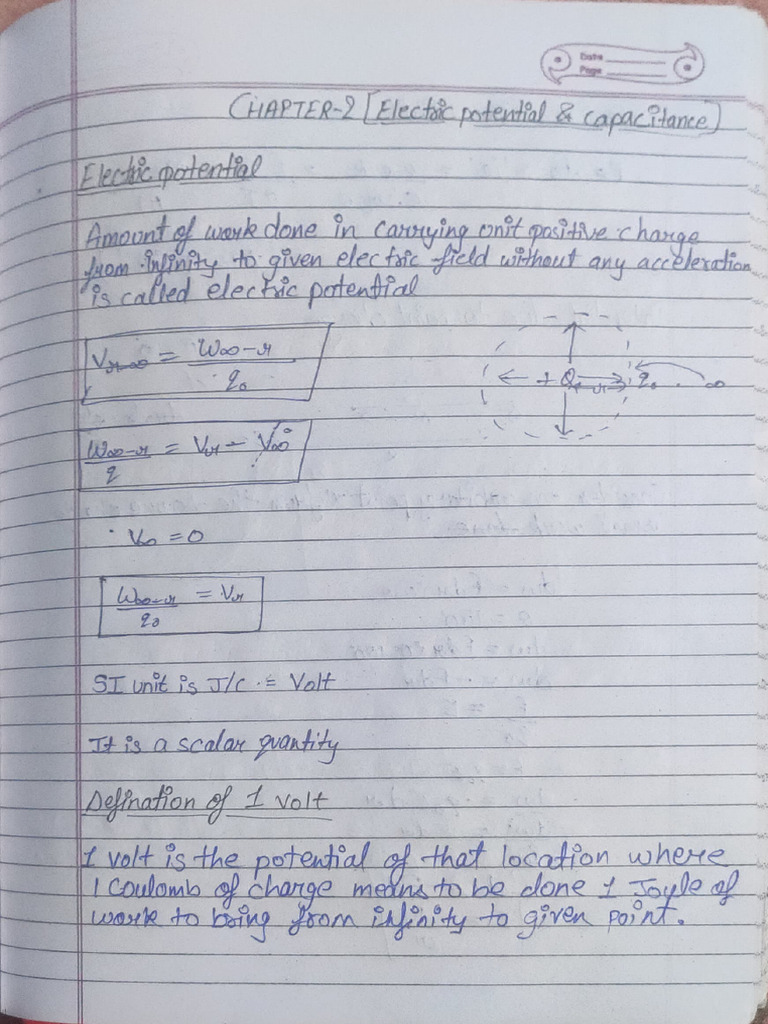 Date
Page
CHAPTER-2 [Electric potential & capacitance]
Electric potential
Amount of work done in carrying unit positive charge
from infinity to given electric field without any acceleration
is called electric potential
Vr-∞ = W∞-r / q₀
← + Q → r q₀ . ∞
W∞-r / q = Vr - V∞ 0
V∞ = 0
W∞-r / q₀ = Vr
SI unit is J/C = Volt
It is a scalar quantity
Defination of 1 volt
1 volt is the potential of that location where
1 Coulomb of charge means to be done 1 Joyle of
work to bring from infinity to given point.